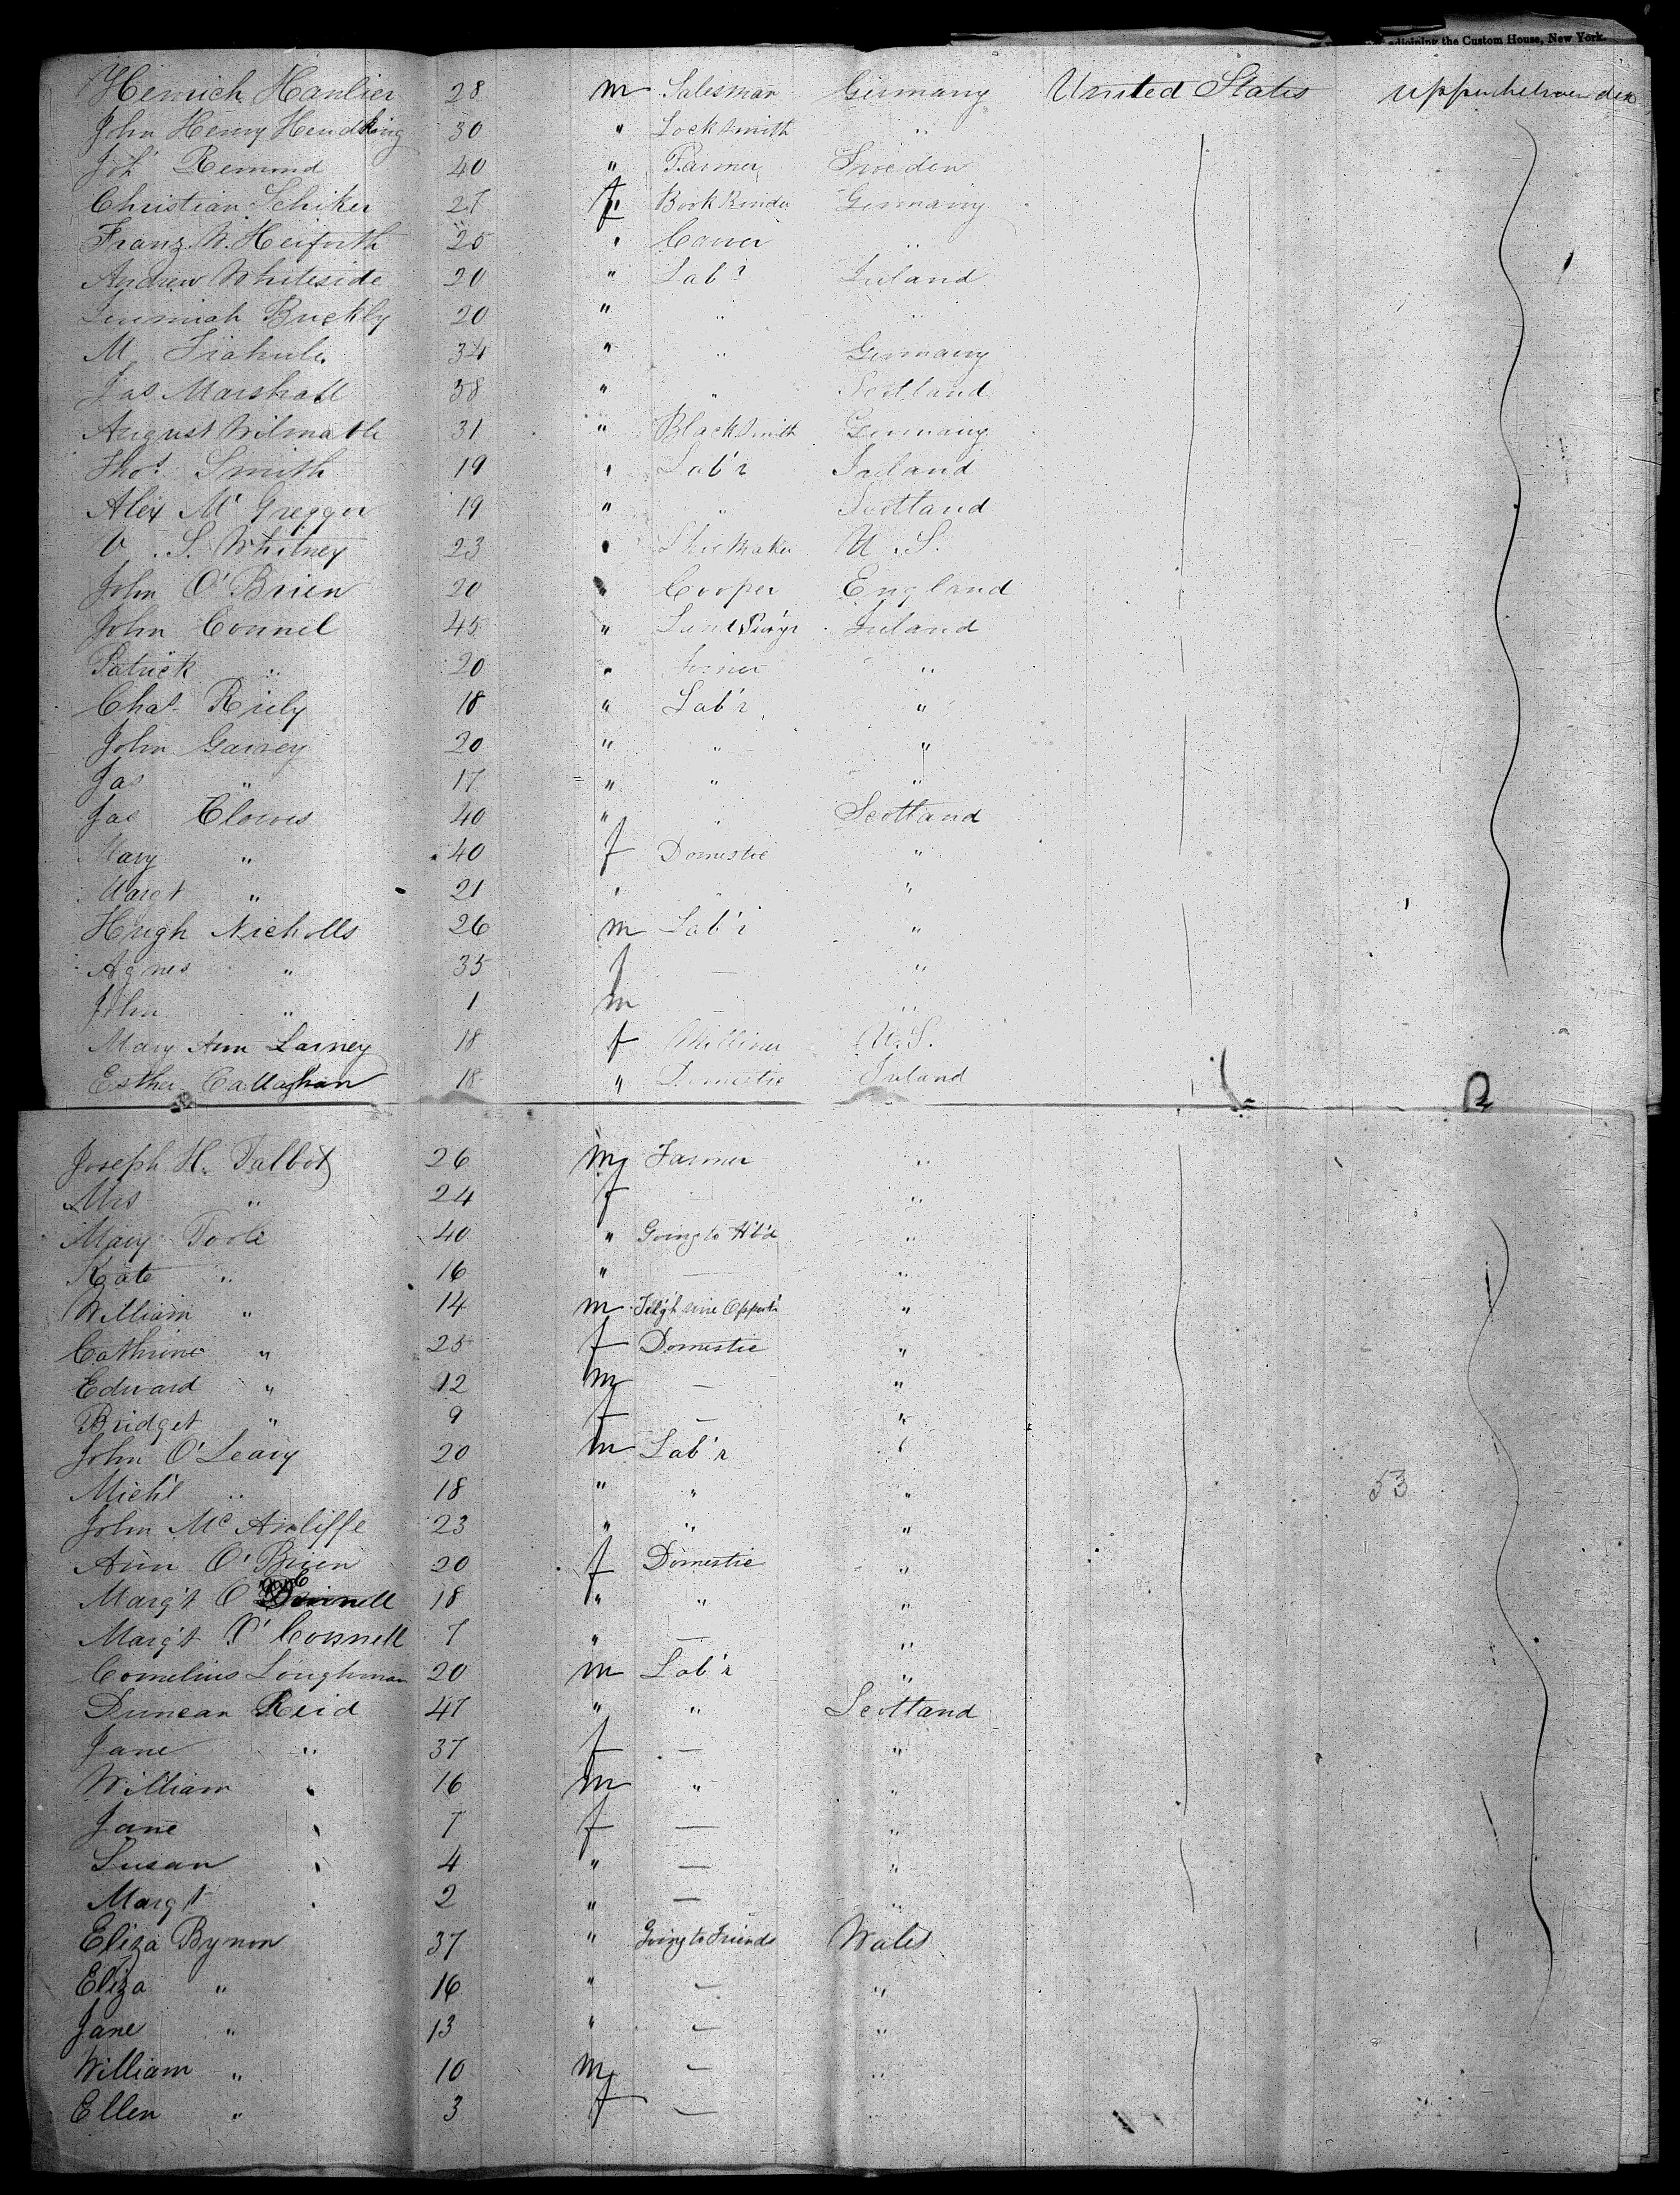 adjoining the Custom House, New York.
Heinrich Hanlier 28 m Salesman Germany United States upper between dek
John Henry Hendking 30 " Locksmith "
Joh Remond 40 " Farmer Sweden
Christian Schiker 27 f Book Binder Germany
Franz W. Heiforth 25 " Carver "
Andrew Whiteside 20 " Lab'r Ireland
Jeremiah Buckly 20 " " "
M 34 " " Germany
Jas Marshall 38 " " Scotland
August Wilmath 31 " Blacksmith Germany
Thos Smith 19 " Lab'r Ireland
Alex Mc Greggor 19 " " Scotland
V. S. Whitney 23 " Shoe Maker U.S.
John O'Brien 20 " Cooper England
John Connel 45 " Land Surv'yr Ireland
Patrick " 20 " Joiner "
Chas Riely 18 " Lab'r "
John Garney 20 " " "
Jas " 17 " " "
Jas Clowes 40 " " Scotland
Mary " 40 f Domestic "
Margt " 21 " " "
Hugh Nicholls 26 m Lab'r "
Agnes " 35 f — "
John " 1 m — "
Mary Ann Larney 18 f Milliner U.S.
Esther Callaghan 18 " Domestic Ireland
Joseph H. Talbot 26 m Farmer "
Mrs " 24 f "
Mary Toole 40 " Going to H'b'd "
Kate " 16 " — "
William " 14 m "
Cathrine " 25 f Domestic "
Edward " 12 m — "
Bridget " 9 f — "
John O'Leary 20 m Lab'r "
Mich'l " 18 " " " 53
John Mc Auliffe 23 " " "
Ann O'Brien 20 f Domestic "
Marg't O' 18 " " "
Marg't O'Connell 7 " — "
Cornelius Loughman 20 m Lab'r "
Duncan Reid 47 " " Scotland
Jane " 37 f — "
William " 16 m " "
Jane " 7 f — "
Susan " 4 " — "
Margt " 2 " — "
Eliza Bynon 37 " Going to Friends Wales
Eliza " 16 " — "
Jane " 13 " — "
William " 10 m — "
Ellen " 3 f —